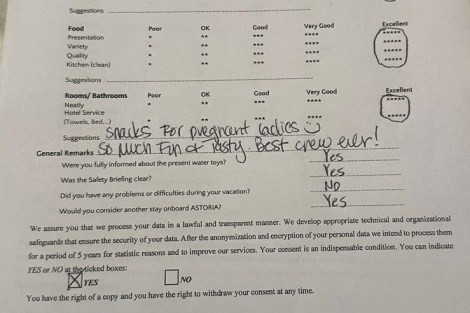 Suggestions
Food Poor OK Good Very Good Excellent
Presentation * ** *** **** *****
Variety * ** *** **** *****
Quality * ** *** **** *****
Kitchen (clean) * ** *** **** *****
Suggestions
Rooms/ Bathrooms Poor OK Good Very Good Excellent
Neatly * ** *** **** *****
Hotel Service
(Towels, Bed...) * ** *** *****
Suggestions snacks for pregnant ladies
General Remarks So Much Fun & Tasty. Best crew ever!
Were you fully informed about the present water toys? Yes
Was the Safety Briefing clear? Yes
Did you have any problems or difficulties during your vacation? NO
Would you consider another stay onboard ASTORIA? Yes
We assure you that we process your data in a lawful and transparent manner. We develop appropriate technical and organizational
safeguards that ensure the security of your data. After the anonymization and encryption of your personal data we intend to process them
for a period of 5 years for statistic reasons and to improve our services. Your consent is an indispensable condition. You can indicate
YES or NO at the ticked boxes:
YES NO
You have the right of a copy and you have the right to withdraw your consent at any time.